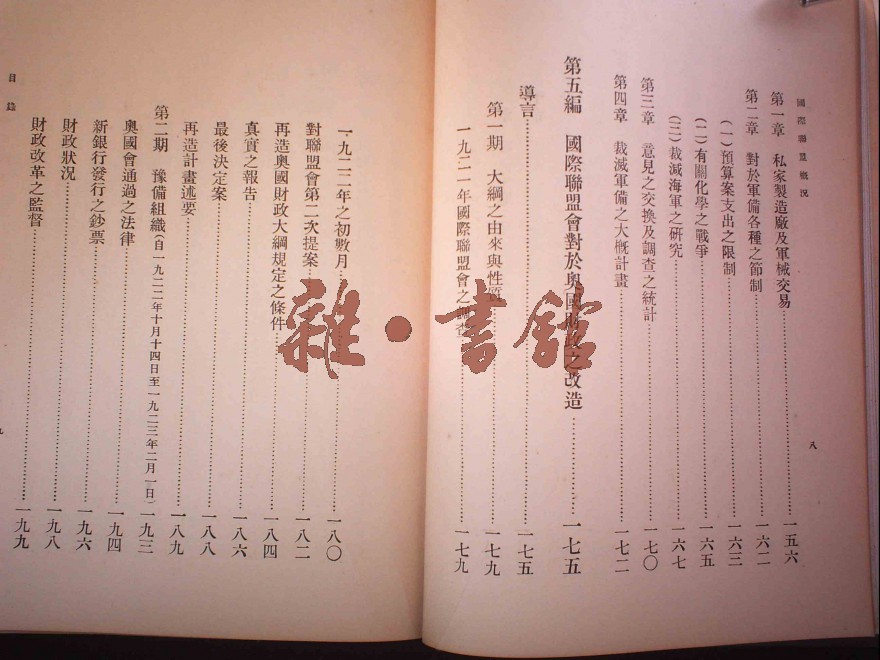 國際聯盟槪况
第一章　私家製造廠及軍械交易……一五六
第二章　對於軍備各種之節制……一六二
（一）預算案支出之限制……一六三
（二）有關化學之戰爭……一六五
（三）裁減海軍之硏究……一六七
第三章　意見之交換及調查之統計……一七〇
第四章　裁減軍備之大槪計畫……一七二
第五編　國際聯盟會對於奥國財政之改造……一七五
導言……一七五
第一期　大綱之由來與性質……一七九
一九二一年國際聯盟會之調查……一七九
八
一九二二年之初數月……一八〇
對聯盟會第二次提案……一八二
再造奥國財政大綱規定之條件……一八四
真實之報告……一八六
最後決定案……一八八
再造計畫述要……一八九
第二期　豫備組織（自一九二二年十月十四日至一九二三年二月一日）……一九三
奥國會通過之法律……一九四
新銀行發行之鈔票……一九六
財政狀況……一九八
財政改革之監督……一九九
目錄
九
雜·書館